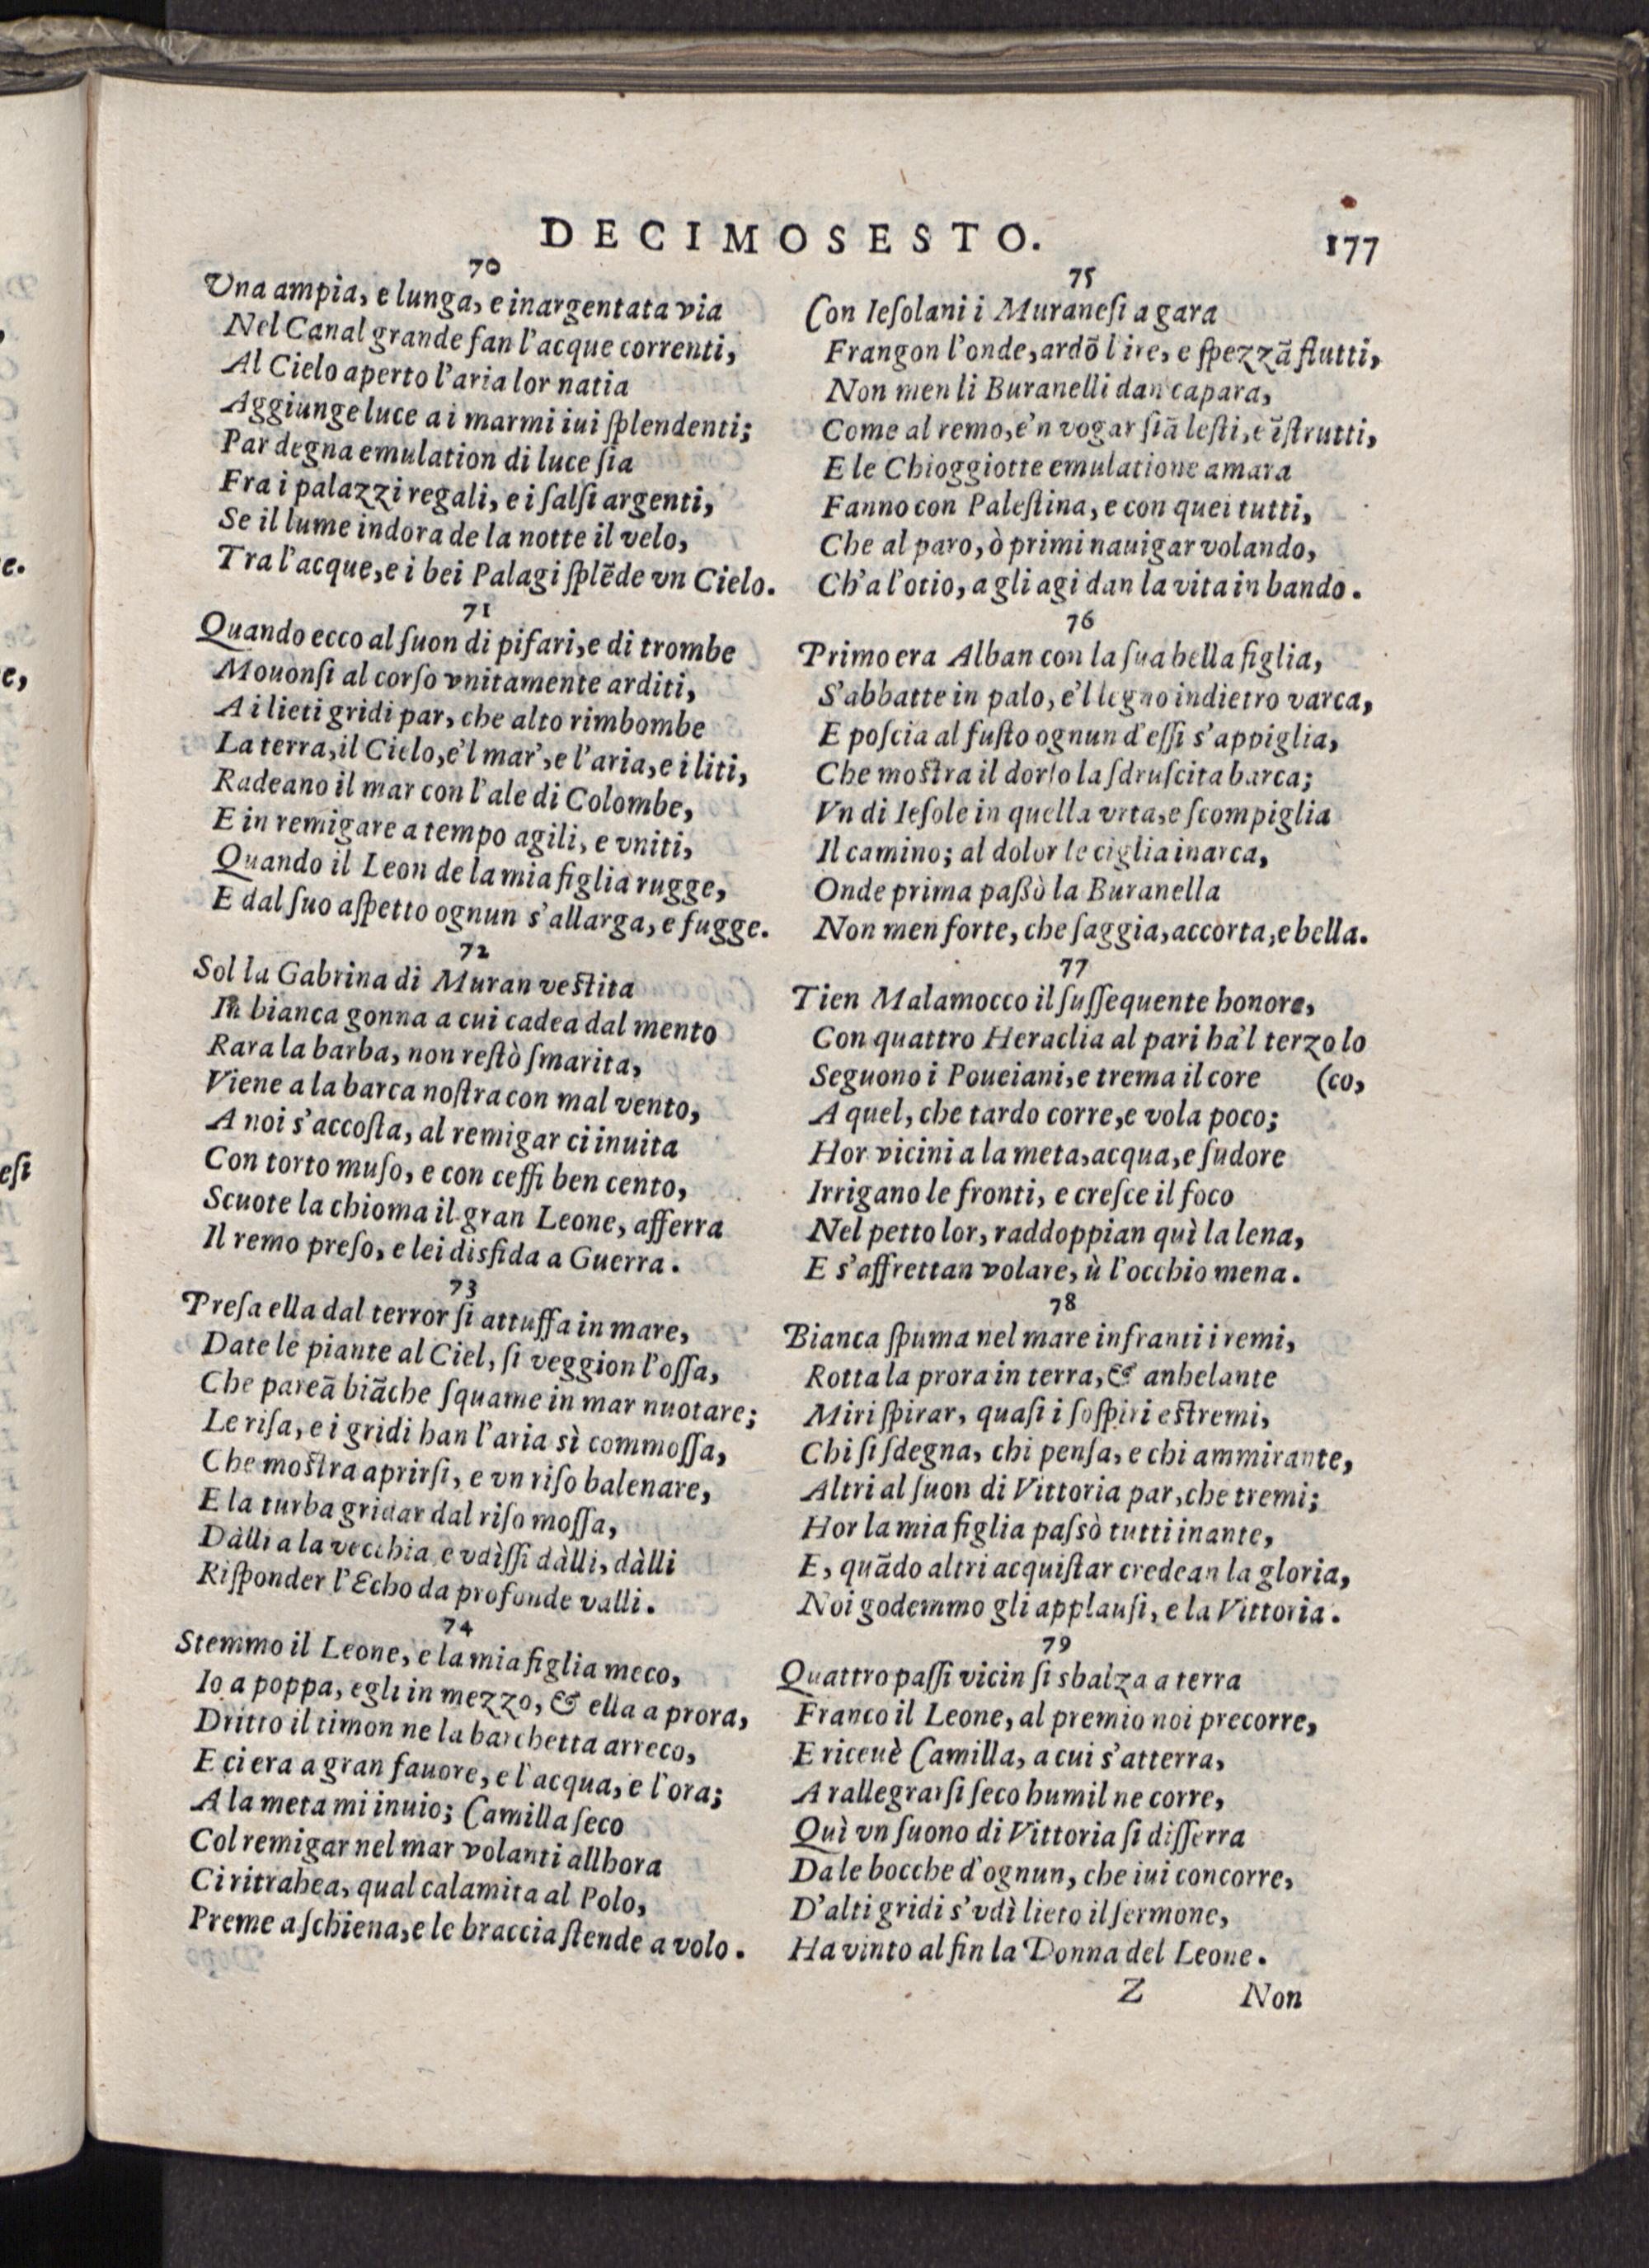 DECIMOSESTO. 177
70
Vna ampia, e lunga, e inargentata via
Nel Canal grande fan l'acque correnti,
Al Cielo aperto l'aria lor natia
Aggiunge luce a i marmi iui ſplendenti;
Par degna emulation di luce ſia
Fra i palazzi regali, e i ſalſi argenti,
Se il lume indora de la notte il velo,
Tra l'acque, e i bei Palagi ſplẽde vn Cielo.
71
Quando ecco al ſuon di pifari, e di trombe
Mouonſi al corſo vnitamente arditi,
A i lieti gridi par, che alto rimbombe
La terra, il Cielo, e'l mar', e l'aria, e i liti,
Radeano il mar con l'ale di Colombe,
E in remigare a tempo agili, e vniti,
Quando il Leon de la mia figlia rugge,
E dal ſuo aſpetto ognun s'allarga, e fugge.
72
Sol la Gabrina di Muran veſtita
In bianca gonna a cui cadea dal mento
Rara la barba, non reſtò ſmarita,
Viene a la barca noſtra con mal vento,
A noi s'accoſta, al remigar ci inuita
Con torto muſo, e con ceffi ben cento,
Scuote la chioma il gran Leone, afferra
Il remo preſo, e lei disfida a Guerra.
73
Preſa ella dal terror ſi attuffa in mare,
Date le piante al Ciel, ſi veggion l'oſſa,
Che pareã biãche ſquame in mar nuotare;
Le riſa, e i gridi han l'aria sì commoſſa,
Che moſtra aprirſi, e vn riſo balenare,
E la turba gridar dal riſo moſſa,
Dàlli a la vecchia, e vdìſſi dàlli, dàlli
Riſponder l'Echo da profonde valli.
74
Stemmo il Leone, e la mia figlia meco,
Io a poppa, egli in mezzo, & ella a prora,
Dritto il timon ne la barchetta arreco,
E ci era a gran fauore, e l'acqua, e l'ora;
A la meta mi inuio; Camilla ſeco
Col remigar nel mar volanti allhora
Ci ritrahea, qual calamita al Polo,
Preme a ſchiena, e le braccia ſtende a volo.
75
Con Ieſolani i Muraneſi a gara
Frangon l'onde, ardõ l'ire, e ſpezzã flutti,
Non men li Buranelli dan capara,
Come al remo, e'n vogar ſiã leſti, e ĩſtrutti,
E le Chioggiotte emulatione amara
Fanno con Paleſtina, e con quei tutti,
Che al paro, ò primi nauigar volando,
Ch'a l'otio, a gli agi dan la vita in bando.
76
Primo era Alban con la ſua bella figlia,
S'abbatte in palo, e'l legno indietro varca,
E poſcia al fuſto ognun d'eſſi s'appiglia,
Che moſtra il dorſo la ſdruſcita barca;
Vn di Ieſole in quella vrta, e ſcompiglia
Il camino; al dolor le ciglia inarca,
Onde prima paßò la Buranella
Non men forte, che ſaggia, accorta, e bella.
77
Tien Malamocco il ſuſſequente honore,
Con quattro Heraclia al pari ha'l terzo lo
Seguono i Poueiani, e trema il core (co,
A quel, che tardo corre, e vola poco;
Hor vicini a la meta, acqua, e ſudore
Irrigano le fronti, e creſce il foco
Nel petto lor, raddoppian quì la lena,
E s'affrettan volare, ù l'occhio mena.
78
Bianca ſpuma nel mare infranti i remi,
Rotta la prora in terra, & anhelante
Miri ſpirar, quaſi i ſoſpiri eſtremi,
Chi ſi ſdegna, chi penſa, e chi ammirante,
Altri al ſuon di Vittoria par, che tremi;
Hor la mia figlia paſsò tutti inante,
E, quãdo altri acquiſtar credean la gloria,
Noi godemmo gli applauſi, e la Vittoria.
79
Quattro paſſi vicin ſi sbalza a terra
Franco il Leone, al premio noi precorre,
E riceuè Camilla, a cui s'atterra,
A rallegrarſi ſeco humil ne corre,
Quì vn ſuono di Vittoria ſi diſſerra
Da le bocche d'ognun, che iui concorre,
D'alti gridi s'vdì lieto il ſermone,
Ha vinto al fin la Donna del Leone.
Z Non